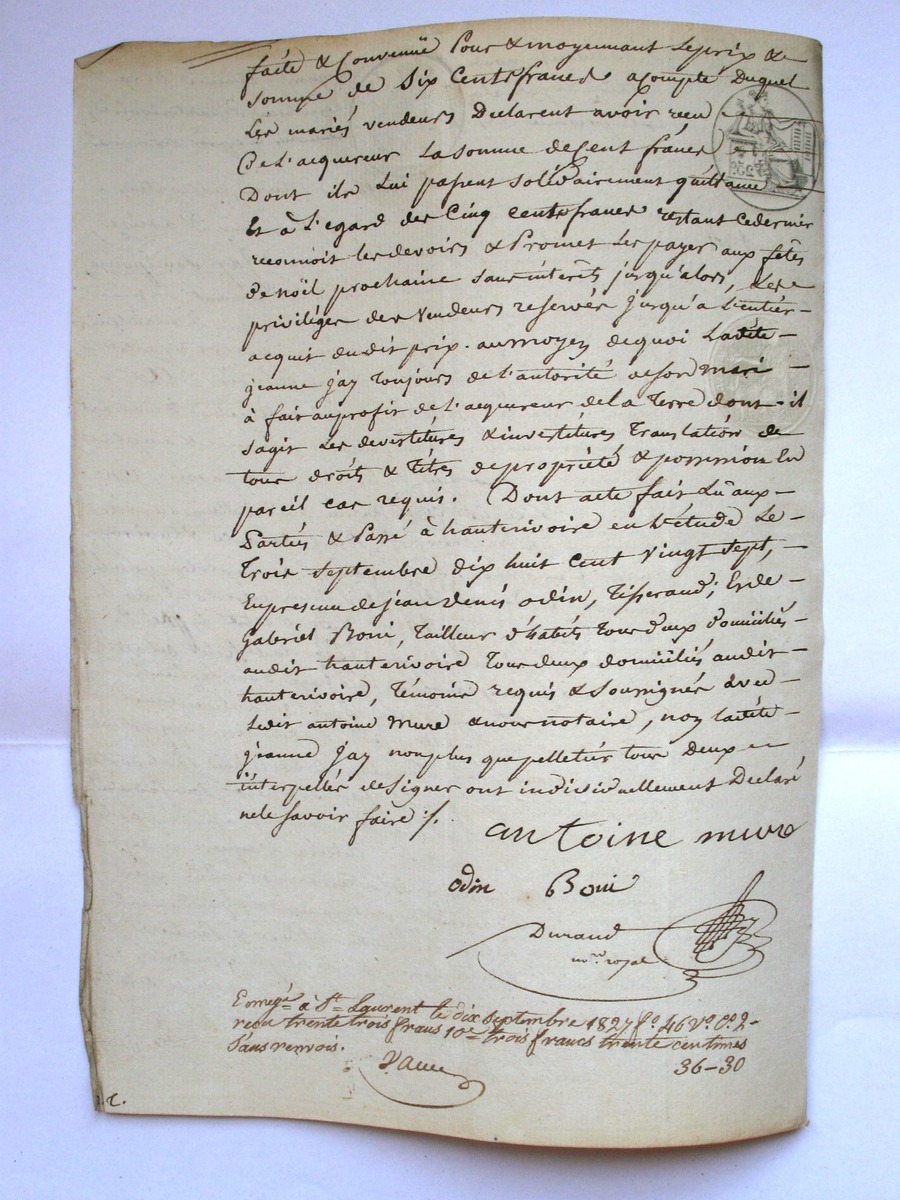 faite & Convenuë Pour & moyennant Le prix &
somme de Six Cents francs acompte Duquel
Les mariés vendeurs Declarent avoir reçu
De L'acquereur La somme de Cent francs
Dont ils Lui passent solidairement quittance
Et à L'egard des Cinq cents francs restant ce dernier
reconnoit les devoirs & Promet Les payer aux fêtes
de noël prochaine sans intérêts jusqu'alors, Les
privilèges des Vendeurs reservés jusqu'a L'entier
acquit dudit prix. au moyen de quoi Ladite
jeanne jay toujours de L'autorité de son mari
à fait au profit de L'acquereur de la Terre dont il
s'agit Les devestitures & investitures Translation de
tous droits & titres de propriété & possession En
pareil cas requis. Dont acte fait Lû aux
Parties & Passé à hauterivoire en L'étude Le
Trois septembre dix huit cent vingt sept,
En presence de jean denis odin, Tisserand; Et de
Gabriel Boni, Tailleur d'habits tous deux domiciliés
audit hauterivoire tous deux domiciliés audit
hauterivoire, Témoins requis & soussignés avec
Ledit antoine Mure & nous notaire, non ladite
jeanne Jay non plus que pelletier tous Deux
interpellés de signer ont individuellement Declaré
ne le savoir faire ./.
antoine mure
odin Boni
Durand
no.re royal
Enregé à St Laurent le dix septembre 1827 fo. 46 vo. Co. 2
reçu trente trois francs 10e trois francs trente centimes
Sans renvois.
36-30